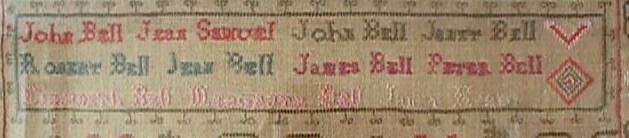 John Bell Jean Samuel John Bell Janet Bell
Robert Bell Jean Bell James Bell Peter Bell
Bell Bell